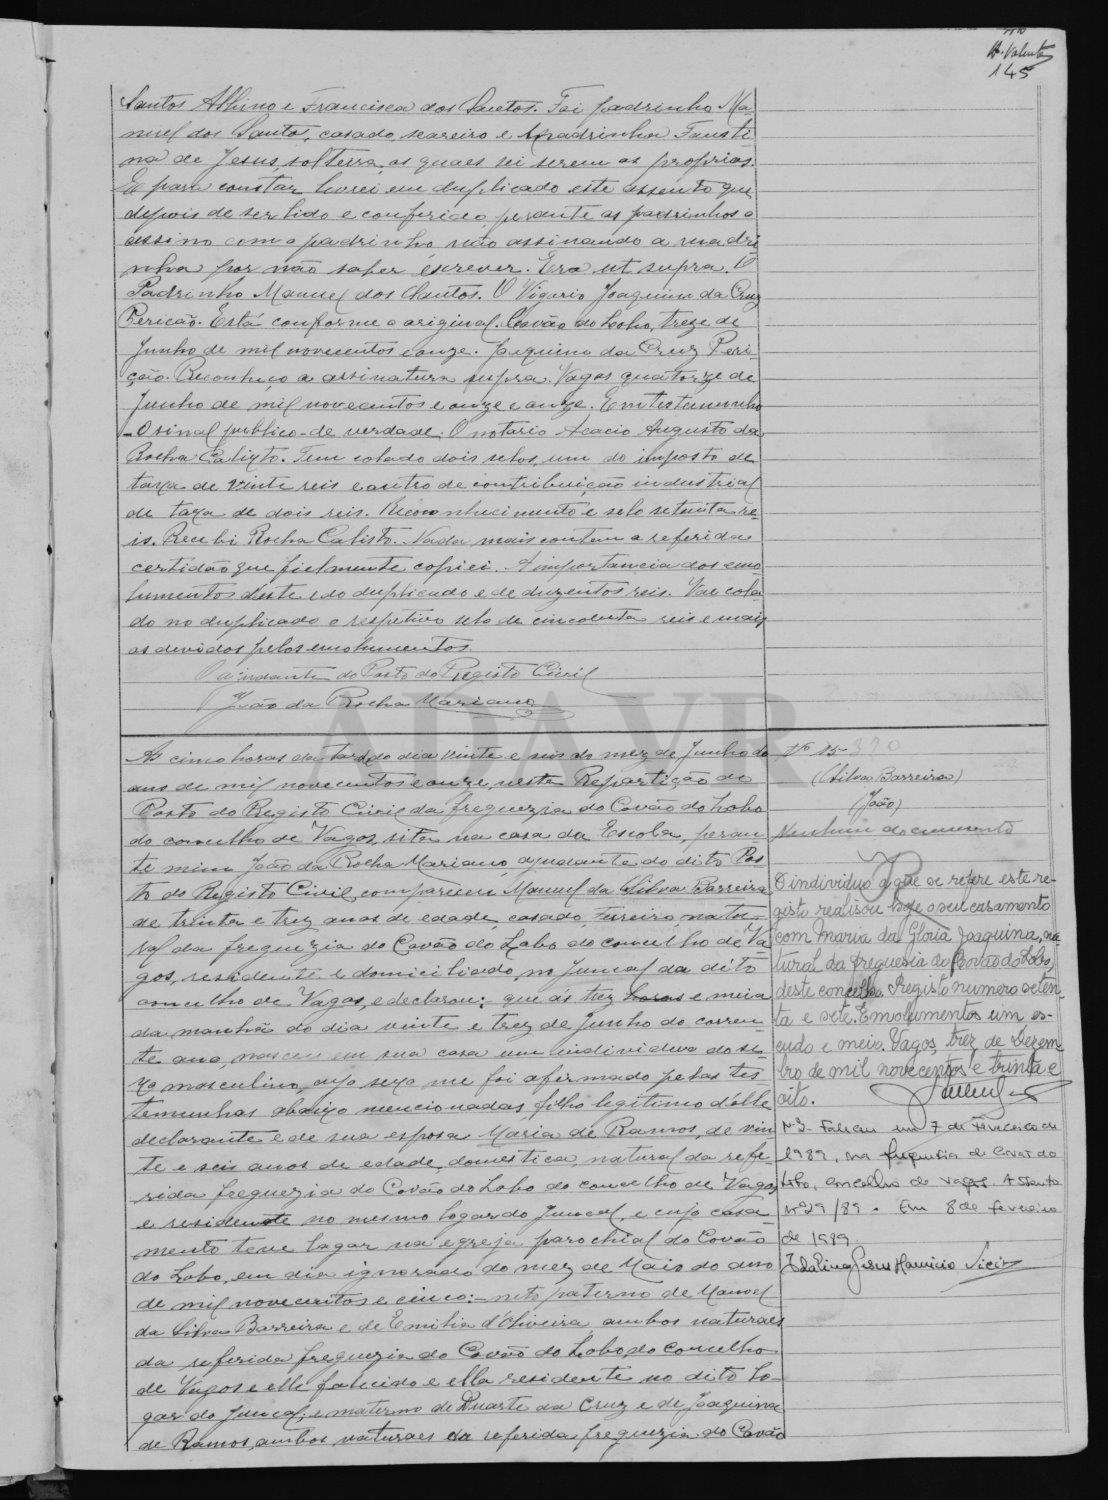 A. Valente
145
Santos Albino e Francisca dos Santos. Foi padrinho Ma
nuel dos Santos, casado, seareiro e Madrinha Fausti
na de Jesus, solteira, os quaes sei serem os proprios.
E para constar lavrei em duplicado este assento que
depois de ser lido e conferido perante os padrinhos o
assino com o padrinho não assinando a madri
nha por não saber escrever. Era ut supra. O
Padrinho Manuel dos Santos. O Vigario Joaquim da Cruz
Pericão. Está conforme o original. Covão do Lobo, treze de
Junho de mil novecentos e onze. Joaquim da Cruz Peri
cão. Reconheço a assinatura supra. Vagos quatorze de
Junho de mil novecentos e onze e onze. Em testemunho
- O sinal publico - de verdade. O notario Acacio Augusto da
Rocha Calixto. Tem colado dois selos, um do imposto de
taxa de vinte reis e outro de contribuição industrial
de taxa de dois reis. Reconhecimento e selo setenta re-
is. Recebi Rocha Calisto. Nada mais contem a referida
certidão que fielmente copiei. A importancia dos emo
lumentos deste e do duplicado e de duzentos reis. Vae cola
do no duplicado o respetivo selo de cincoenta reis e mais
os devidos pelos emolumentos.
O ajudante do Posto do Registo Civil
João da Rocha Mariano
ADAVR
As cinco horas da tarde do dia vinte e seis do mez de Junho do
ano de mil novecentos e onze, nesta Repartição do
Posto do Registo Civil da freguezia do Covão do Lobo
do concelho de Vagos, sita na casa da Escola, peran-
te mim João da Rocha Mariano, ajudante do dito Pos
to do Registo Civil, compareceu Manuel da Silva Barreira
de trinta e trez anos de edade, casado, Ferreiro, natu-
ral da freguezia do Covão do Lobo do concelho de Va
gos, residente e domiciliado, no Juncal da dito
concelho de Vagos, e declarou: que ás trez horas e meia
da manhã do dia vinte e trez de Junho do corren-
te ano, nasceu em sua casa um individuo do se-
xo masculino, cujo sexo me foi afirmado pelas tes-
temunhas abaixo mencionadas, filho legitimo d'elle
declarante e de sua esposa Maria de Ramos, de vin
te e seis anos de edade, domestica, natural da refe-
rida freguezia do Covão do Lobo do concelho de Vagos
e residente no mesmo logar do Juncal, e cujo casa-
mento teve lugar na egreja parochial do Covão
do Lobo, em dia ignorado do mez de Maio do ano
de mil novecentos e cinco: - neto paterno de Manoel
da Silva Barreira e de Emilia d'Oliveira, ambos naturaes
da referida freguezia do Covão do Lobo, do concelho
de Vagos e elle falecido e ella residente no dito lo-
gar do Juncal; e materno de Duarte da Cruz e de Joaquina
de Ramos, ambos naturaes da referida freguezia do Covão
Nº 15-320
(Silva Barreira)
(João)
Nenhum documento
O individuo a que se refere este re-
gisto realisou hoje o seu casamento
com Maria da Gloria Joaquina, na
tural da freguesia do Covão do Lobo,
deste concelho. Registo numero seten-
ta e sete. Emolumentos um es-
cudo e meio. Vagos, trez de Dezem
bro de mil novecentos e trinta e
oito.
Nº 3- Faleceu em 7 de Fevereiro de
1989, na freguesia de Covão do
Lobo, concelho de Vagos. Assento
nº 29/89. Em 8 de fevereiro
de 1989.